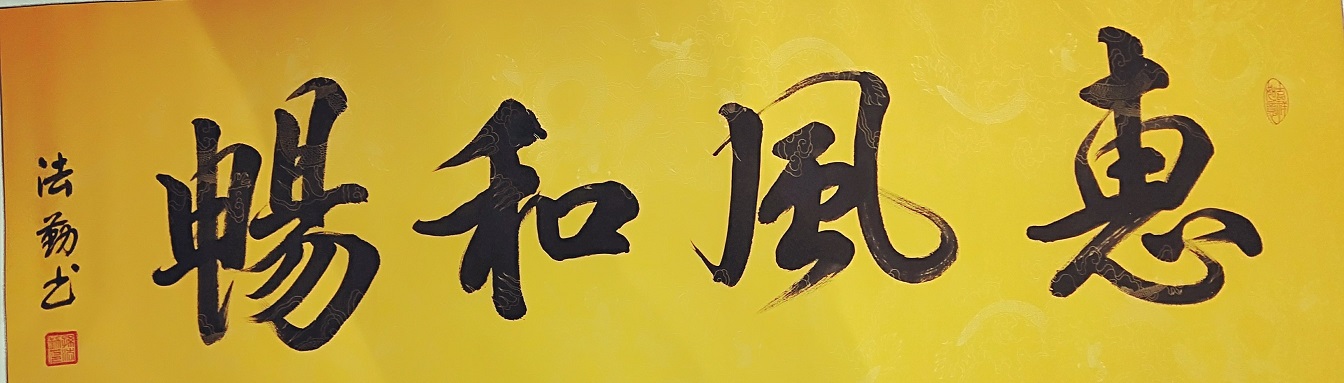 惠風和暢
法勤书